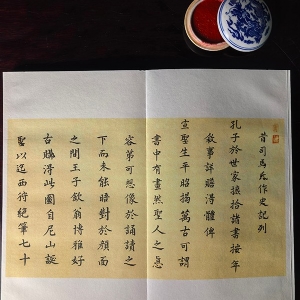 昔司馬氏作史記列
孔子於世家攟拾諸書按年
敘事詳贍得體俾
宣聖生平昭揭萬古可謂
書中有畫然聖人之息
容第可想像於誦讀之
下而未能晤對於顏面
之間王子欽翁博雅好
古購得此圖自尼山誕
聖以迄西狩絕筆七十